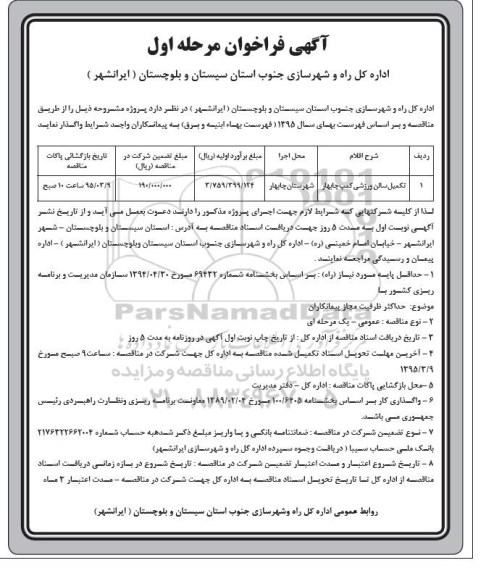 آگهی فراخوان مرحله اول
اداره کل راه و شهرسازی جنوب استان سیستان و بلوچستان ( ایرانشهر )
اداره کل راه و شهرسازی جنوب استان سیستان و بلوچستان ( ایرانشهر ) در نظر دارد پروژه مشروحه ذیل را از طریق
مناقصه و بر اساس فهرست بهای سال ۱۳۹۵ ( فهرست بهاء ابنیه و برق) به پیمانکاران واجد شرایط واگذار نماید
ردیف شرح اقلام محل اجرا مبلغ برآورد اولیه (ریال) مبلغ تضمین شرکت در مناقصه (ریال) تاریخ بازگشائی پاکات مناقصه
۱ تکمیل سالن ورزشی کمب چابهار شهرستان چابهار ۳/۷۵۹/۳۹۹/۱۲۴ ۱۹۰/۰۰۰/۰۰۰ ۹۵/۰۳/۹ ساعت ۱۰ صبح
لذا از کلیه شرکتهایی که شرایط لازم جهت اجرای پروژه مذکور را دارند دعوت بعمل می آید و از تاریخ نشر
آگهی نوبت اول به مدت ۵ روز جهت دریافت اسناد مناقصه به آدرس : استان سیستان و بلوچستان – شهر
ایرانشهر – خیابان امام خمینی (ره) – اداره کل راه و شهرسازی جنوب استان سیستان وبلوچستان ( ایرانشهر ) – اداره
پیمان و رسیدگی مراجعه نمایند .
۱ – حداقل پایه مورد نیاز (راه) : بر اساس بخشنامه شماره ۶۹۴۳۲ مورخ ۱۳۹۴/۰۴/۳۰ سازمان مدیریت و برنامه
ریزی کشور با
موضوع: حداکثر ظرفیت مجاز پیمانکاران
۲ – نوع مناقصه : عمومی – یک مرحله ای
۳ – تاریخ دریافت اسناد مناقصه از اداره کل : از تاریخ چاپ نوبت اول آگهی در روزنامه به مدت ۵ روز
۴ – آخرین مهلت تحویل اسناد تکمیل شده مناقصه به اداره کل جهت شرکت در مناقصه : ساعت ۹ صبح مورخ
۱۳۹۵/۳/۹
۵ – محل بازگشایی پاکات مناقصه : اداره کل – دفتر مدیریت
۶ – واگذاری کار بر اساس بخشنامه ۱۰۰/۶۴۰۵ مورخ ۱۳۸۹/۰۲/۰۴ معاونت برنامه ریزی ونظارت راهبردی رئیس
جمهوری می باشد.
۷ – نوع تضمین شرکت در مناقصه : ضمانتنامه بانکی و یا واریز مبلغ ذکر شده به حساب شماره ۲۱۷۶۳۲۲۶۶۲۰۰۴
بانک ملی حساب سیبا ( دریافت وجوه سپرده اداره کل راه و شهرسازی ایرانشهر)
۸ – تاریخ شروع اعتبار و مدت اعتبار تضمین شرکت در مناقصه : تاریخ شروع در بازه زمانی دریافت اسناد
مناقصه از اداره کل تا تاریخ تحویل اسناد مناقصه به اداره کل جهت شرکت در مناقصه – مدت اعتبار ۳ ماه
روابط عمومی اداره کل راه وشهرسازی جنوب استان سیستان و بلوچستان ( ایرانشهر )
ParsNamadData
پایگاه اطلاع رسانی مناقصه و مزایده